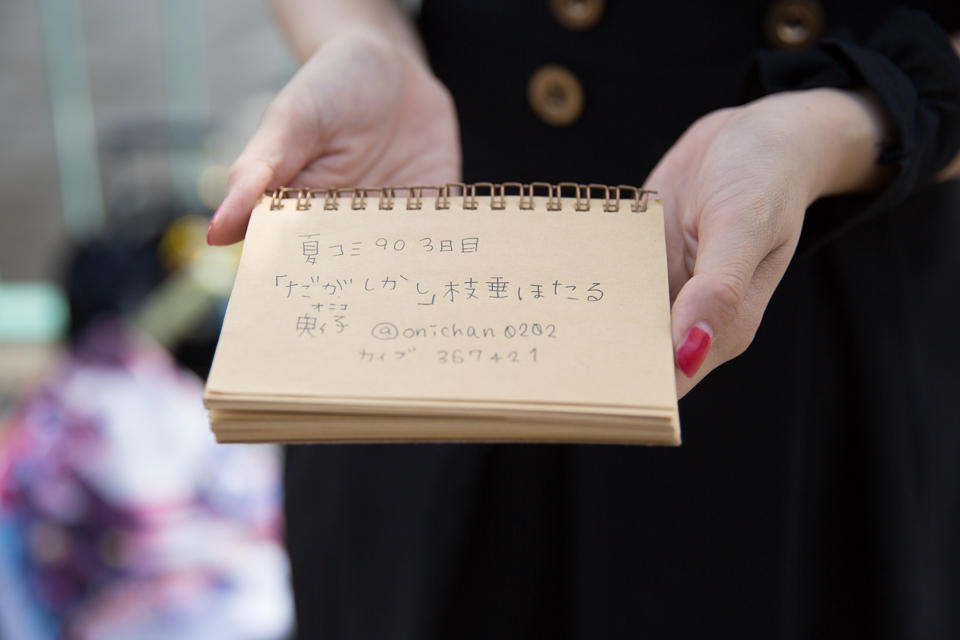 夏コミ90 3日目
「だがしかし」枝垂ほたる
オニコ
鬼子 @onichan0202
カイブ 367421